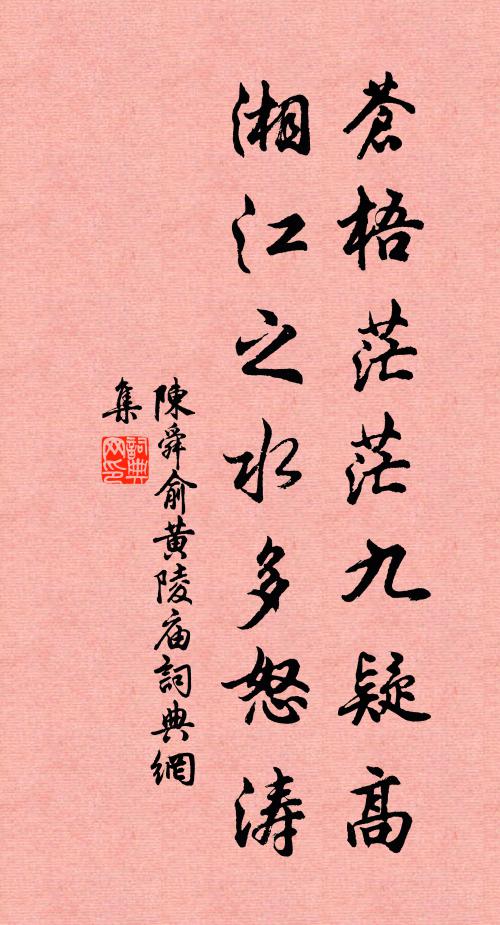 蒼梧茫茫九疑高
湘江之水多怒涛
陳舜俞黄陵庙詞典網
集
詞典网印